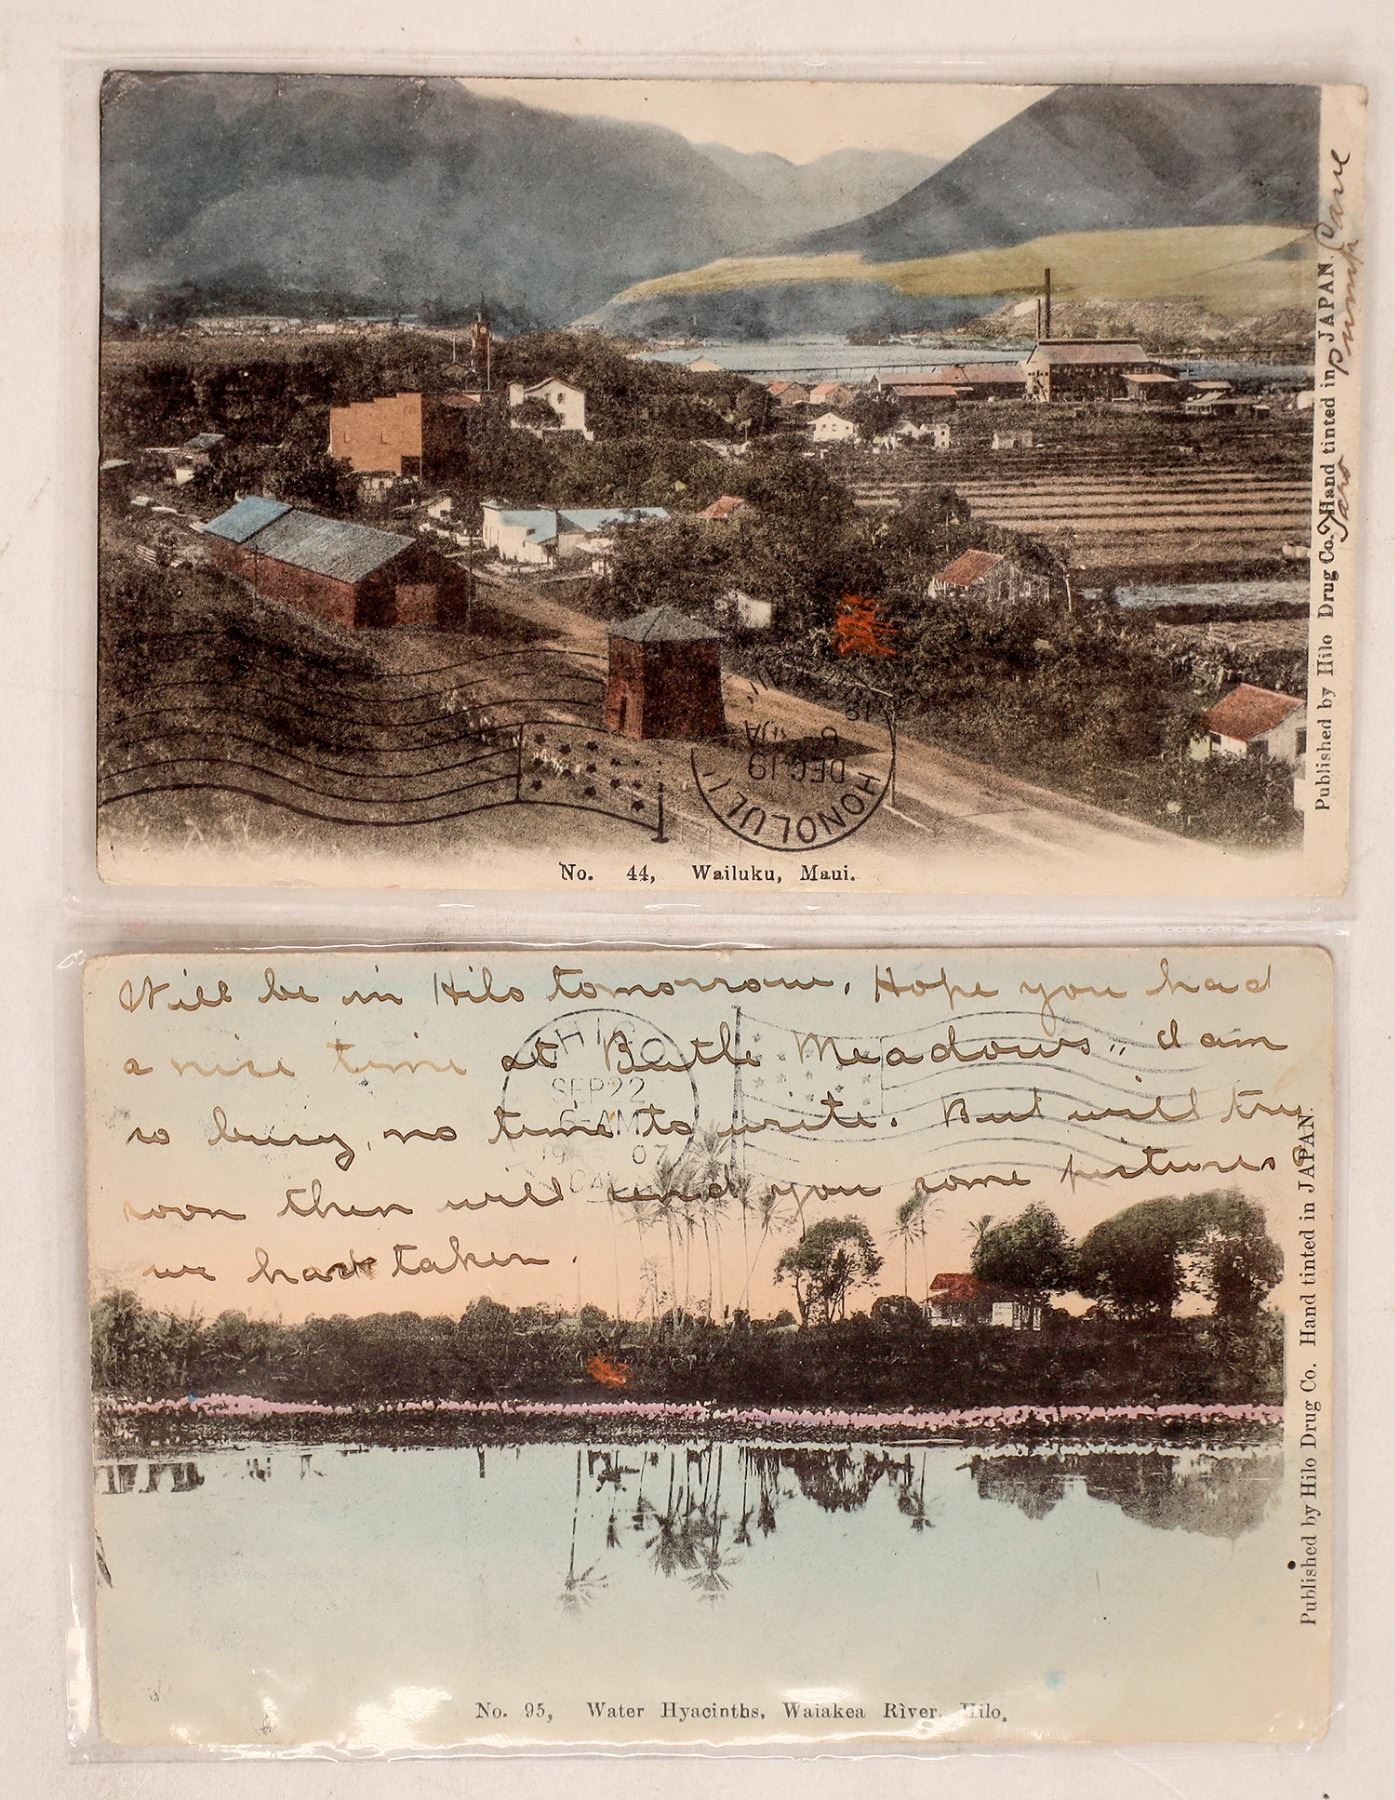 No. 44, Wailuku, Maui.
Published by Hilo Drug Co. Hand tinted in JAPAN.
Taro pump Cane
HONOLULU
DEC 19
Will be in Hilo tomorrow. Hope you had
a nice time at Butle Meadows. I am
so busy, no time to write. But will try
soon then will send you some pictures
we have taken.
CHICO
SEP 22
6-AM
07
CAL
No. 95, Water Hyacinths, Waiakea River, Hilo.
Published by Hilo Drug Co. Hand tinted in JAPAN.